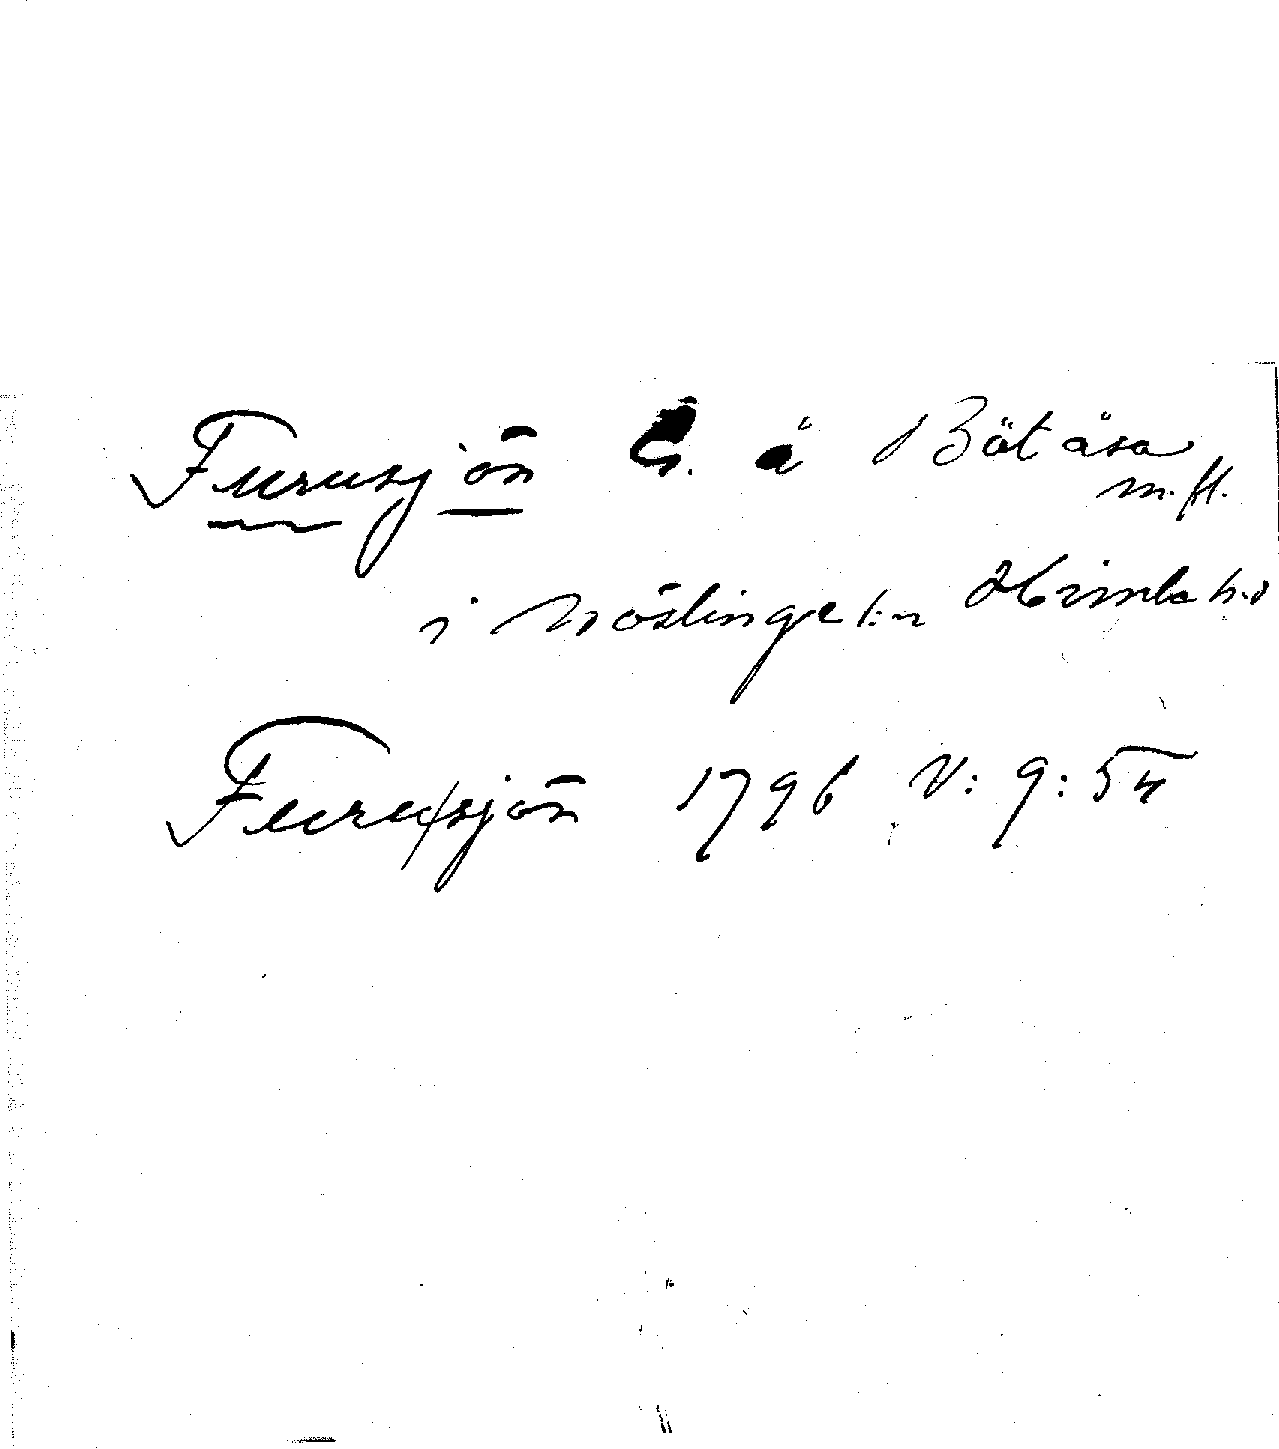 Furusjön G. å Båtåsa
m.fl.
i Nöslinge s:n Himle h:d
Furusjön 1796 V: 9: 54